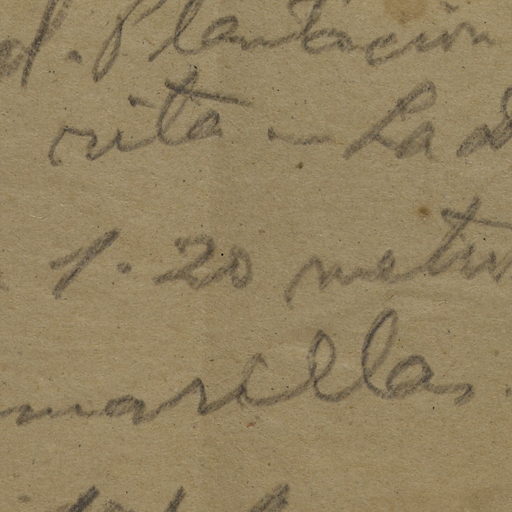 d. Plantación
rita - La
1.20 metro
marcela,